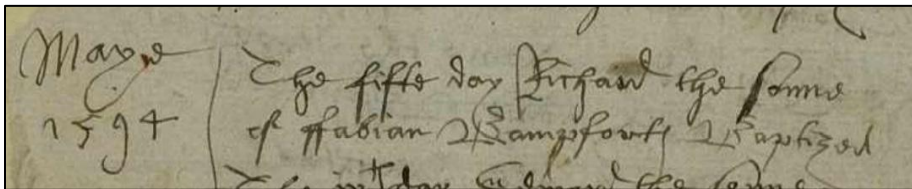 Maye
1594
The fifte day Richard the sonne
of ffabian Bampforth Baptized
the sonne